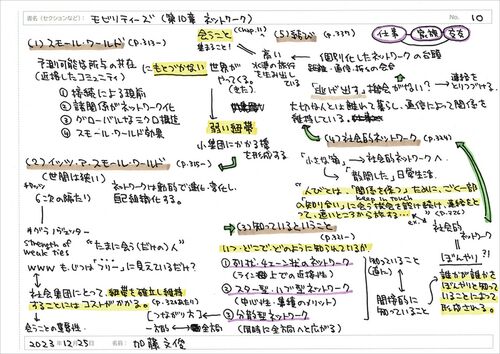 書名(セクションなど): モビリティーズ (第10章 ネットワーク)
No. 10
(1) スモール・ワールド (p.313-)
予測可能な所与の共在
(近接したコミュニティ)
にもとづかない世界が
やってくる。
(きた)
① 接続による現前
② 諸関係がネットワーク化
③ グローバルなミクロ構造
④ スモールワールド効果
弱い紐帯
小集団にかかる橋
を形成する
会うこと (Chap.11)
集まること!
高い
水準の旅行
を生み出し
ている
(5) 結び (p.337)
仕事 家族 交友
個別化したネットワークの台頭
距離・通信・折々の会合
"逃げ出す"機会がない?
連絡を
とりつづける。
大切な人とは離れて暮らし、通信によって関係を
維持している。
(4) 社会的ネットワーク (p.324)
"小さな箱" → 社会的ネットワークへ.
"散開した"日常生活.
"人びとは…「関係を保つ」ために、ごく一部
keep in touch
の「知り合い」に会う機会を設け続け、連絡をと
(p.326)
ex.
社会的
ネットワーク
ぼんやり?!
誰かが誰かを
ぼんやりと知っ
ていることによっ
て形成される
(2) イッツ・ア・スモール・ワールド (p.315-)
(世間は狭い)
6次の隔たり
ネットワークは動的で進化・変化し、
自己組織化する。
strength of
weak ties
"たまに会う(だけの)人"
www も、じつは「フラリー」に見えているだけ?
社会集団にとって、紐帯を確立し維持
することにはコストがかかる。(p.322あたり)
会うことの重要性
つながり方
(3) 知っているということ
(p.321-)
いつ・どこで・どのように知られているか
① 列状・チェーン状のネットワーク
(ライン上での近接性)
② スター型・ハブ型ネットワーク
(中心性・集積のメリット)
③ 分散型ネットワーク
(同時に全方向へと広がる)
知っている
こと
間接的に
知っていること
2023年12月25日
名前: 加藤文俊